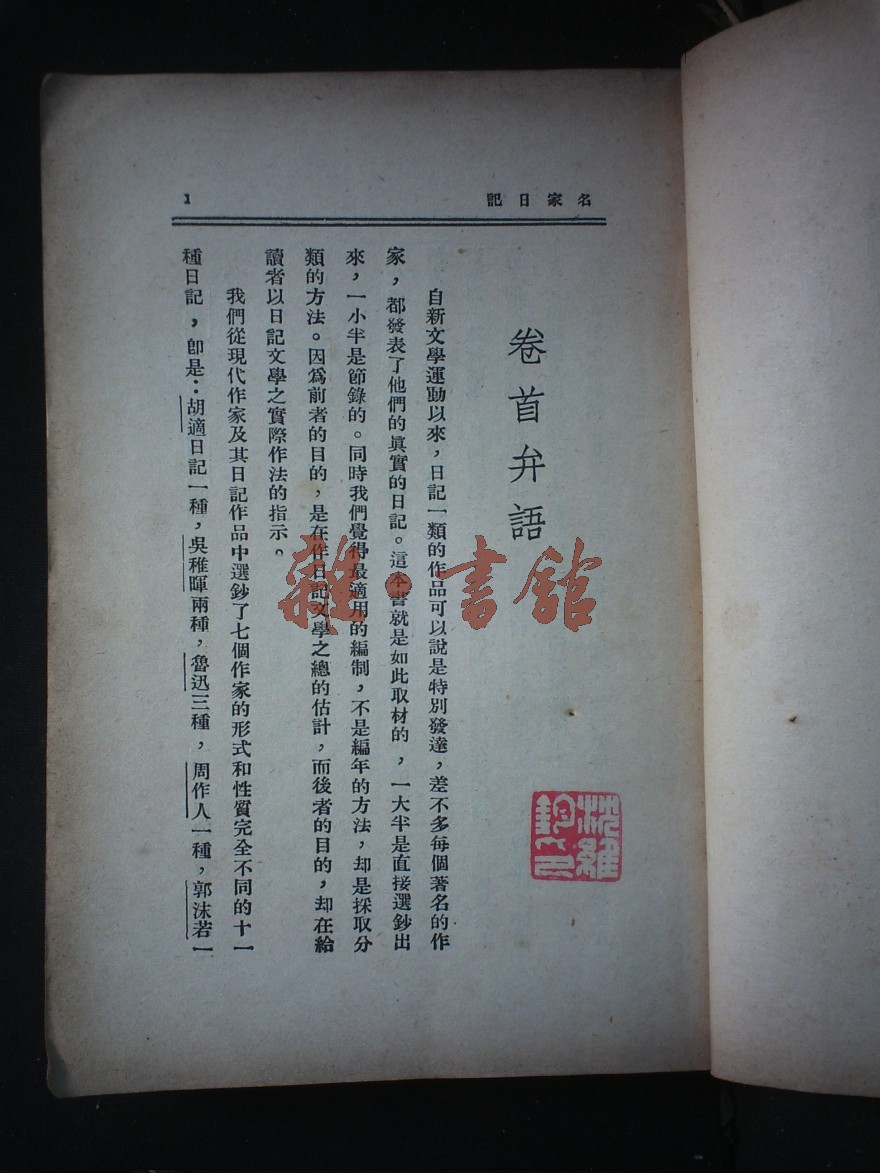 名家日記
1
卷首弁語
自新文學運動以來，日記一類的作品可以說是特別發達，差不多每個著名的作
家，都發表了他們的眞實的日記。這本書就是如此取材的，一大半是直接選鈔出
來，一小半是節錄的。同時我們覺得最適用的編制，不是編年的方法，却是採取分
類的方法。因爲前者的目的，是在作日記文學之總的估計，而後者的目的，却在給
讀者以日記文學之實際作法的指示。
我們從現代作家及其日記作品中選鈔了七個作家的形式和性質完全不同的十一
種日記，卽是：胡適日記一種，吳稚暉兩種，魯迅三種，周作人一種，郭沫若一
雜·書館